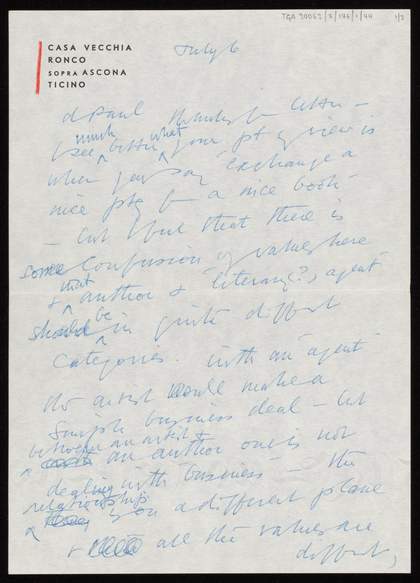 TGA 200612/5/175/1/44 1/2
CASA VECCHIA
RONCO
SOPRA ASCONA
TICINO
July 6
d Paul Thanks for letter –
much what
I see better your pt of view is
when you say exchange a
nice ptg for a nice book
– but I feel that there is
some confusion of values here
that
& author & literary(?) agent
be
should in quite diffrt
categories. with an agent
the artist would make a
simple business deal – but
between an artist &
an author one is not
dealing with business – the
relationship
is on a different plane
& all the values are
diffrent,